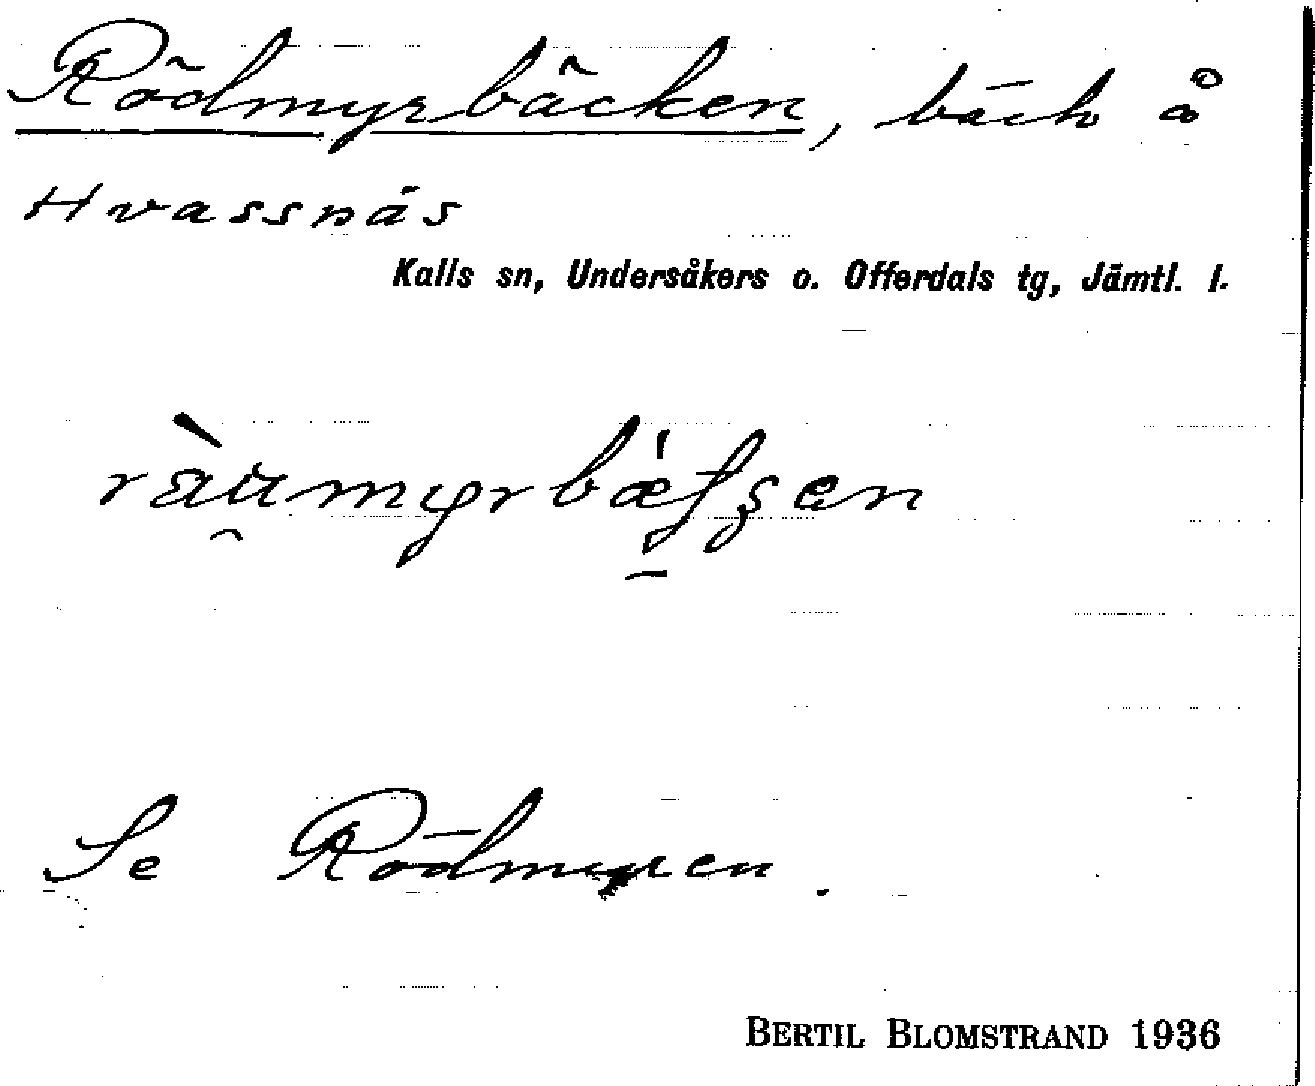 Rödmyrbäcken, bäck å
Hvassnäs
Kalls sn, Undersåkers o. Offerdals tg, Jämtl. l.
Se Rödmyren.
BERTIL BLOMSTRAND 1936